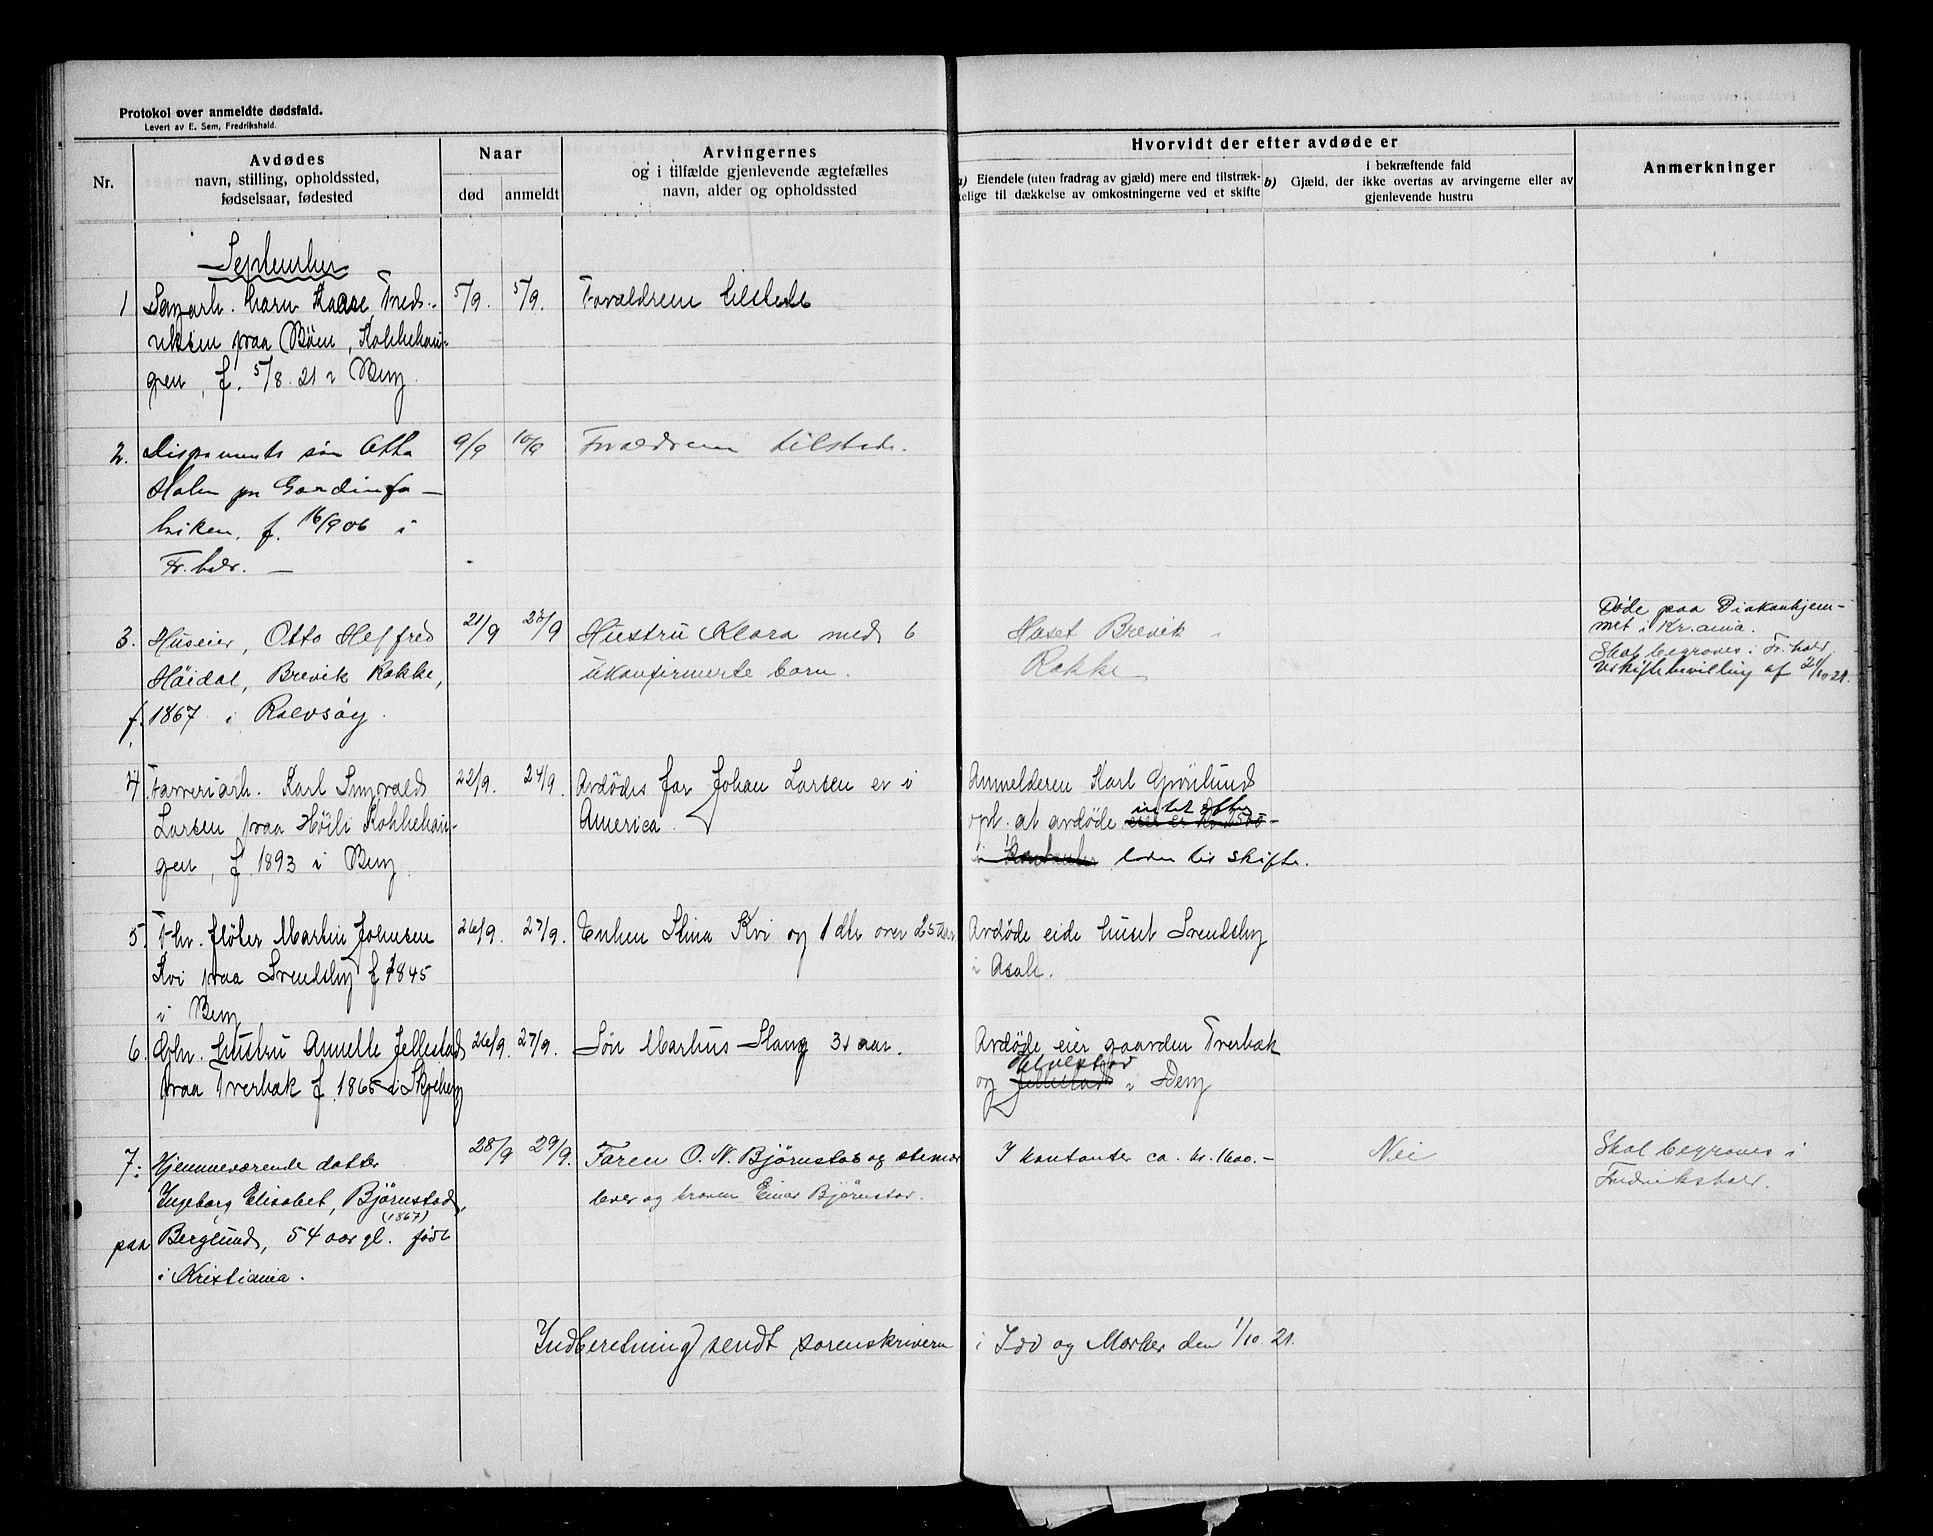 Protokol over anmeldte dødsfald.
Levert av E. Sem, Fredrikshald.
Nr.
Avdødes
navn, stilling, opholdssted,
fødselsaar, fødested
Naar
død
anmeldt
Arvingernes
og i tilfælde gjenlevende ægtefælles
navn, alder og opholdssted
Hvorvidt der efter avdøde er
a) Eiendele (uten fradrag av gjæld) mere end tilstræk-
kelige til dækkelse av omkostningerne ved et skifte
i bekræftende fald
b) Gjæld, der ikke overtas av arvingerne eller av
gjenlevende hustru
Anmerkninger
September
1 Sagarb. barn Kaare Fred-
riksen paa Bøen, Kokkehau-
gen, f. 5/8.21 i Berg.
5/9. 5/9.
Forældrene tilstede
2. Disponents søn Otto
Holen pr Gardinfa-
briken, f. 16/9 06 i
Fr.hald. —
9/9 10/9
Forældrene tilstede.
3. Huseier, Otto Helfred
Høidal, Brevik Rokke,
f. 1867 i Rolvsøy.
21/9 23/9
Hustru Klara med 6
ukonfirmerte barn.
Huset Brevik
Rokke
Døde paa Diakonhjem-
met i Kr.ania.
Skal begraves i Fr.hald
Uskiftebevilling af 24/10 21.
4. Garveriarb. Karl Sigvald
Larsen paa Høili Kokkehau-
gen, f. 1893 i Berg.
22/9. 24/9.
Avdødes far Johan Larsen er i
America.
Anmelderen Karl Grönlund
opl. at avdøde intet efter-
i kontanter lader til skifte.
5. Fhv. fløter Martin Johnsen
Kvi paa Svendsby f 1845
i Berg
26/9. 27/9.
Enken Stina Kvi og 1 dtr over 25 aar
Avdøde eide huset Svendsby
i Asak.
6. Gbr. hustru Annette Jellestad
paa Tverbæk f. 1865 i Skjeberg
26/9. 27/9.
Søn Markus Stang 31 aar.
Avdøde eier gaarden Tverbæk
og Jellestad i Berg
7. Hjemmeværende datter
Ingeborg Elisabet, Bjørnstad,
(1867)
paa Berglund, 54 aar gl. født
i Kristiania.
28/9 29/9.
Faren O. N. Bjørnstad og stemor
lever og broren Einar Bjørnstad.
I kontanter ca. kr. 1600.-
Nei
Skal begraves i
Fredrikshald.
Indberetning sendt sorenskriveren i Idd og Marker den 1/10. 21.